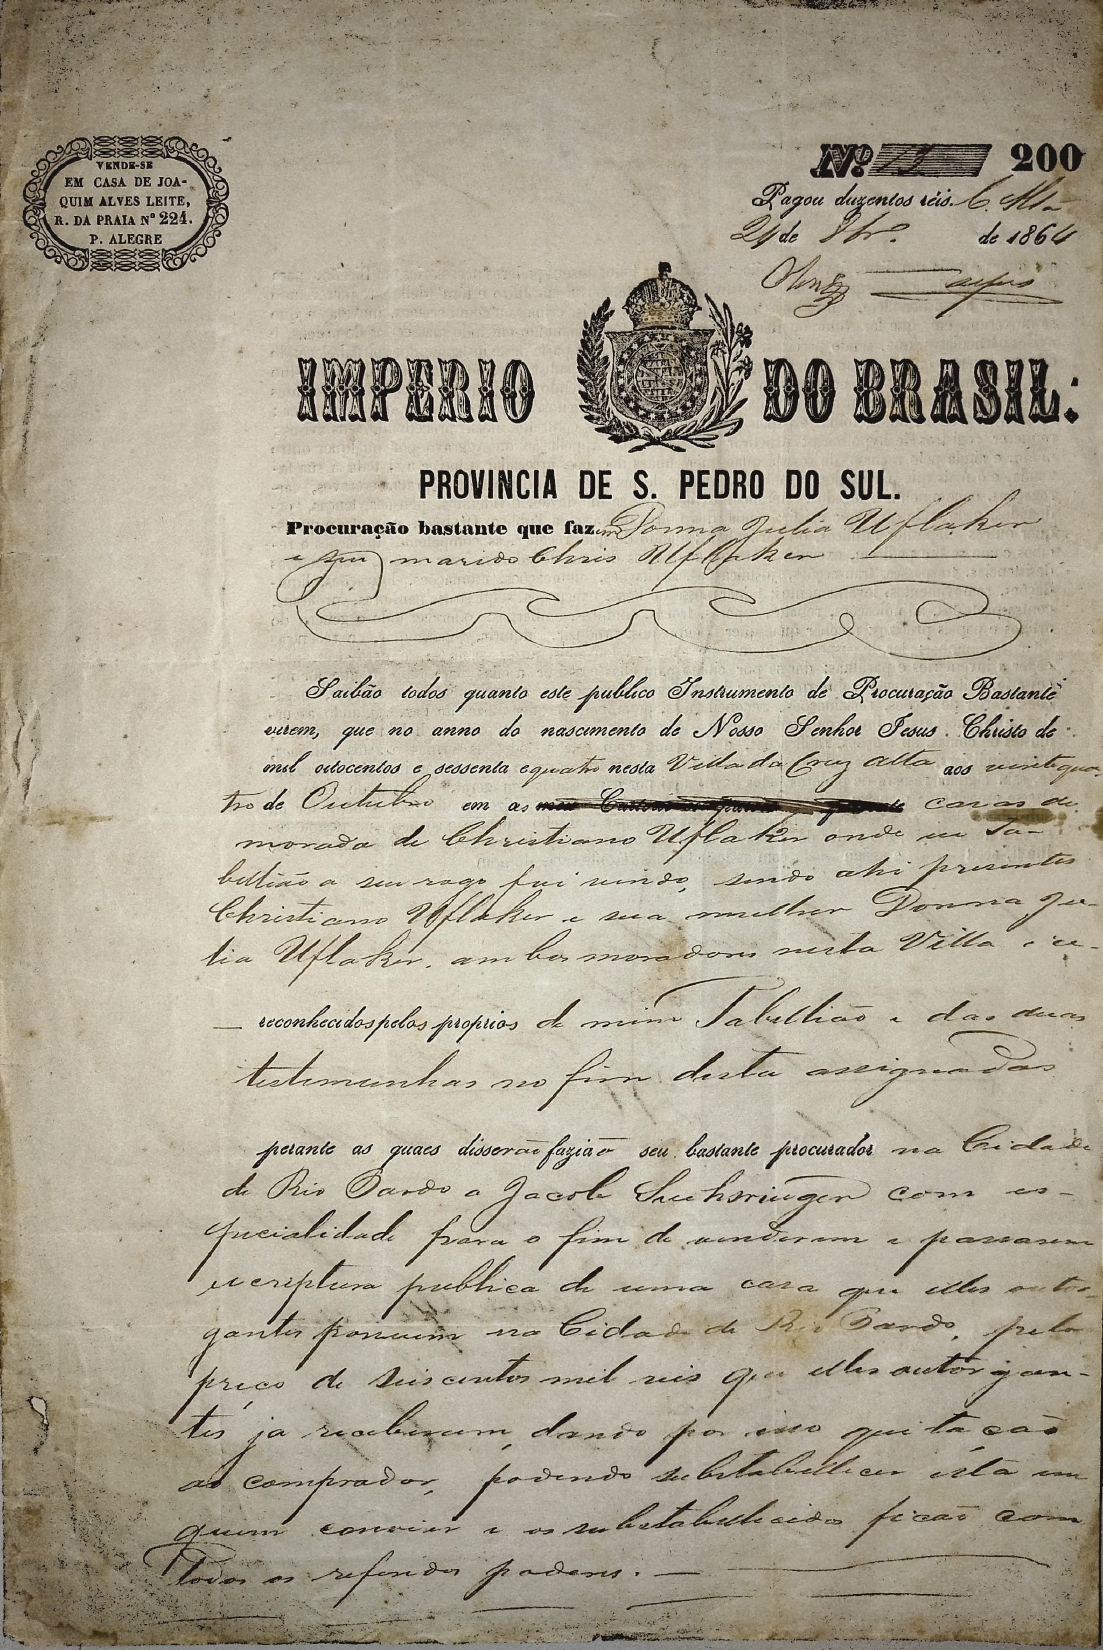 VENDE-SE
EM CASA DE JOA-
QUIM ALVES LEITE,
R. DA PRAIA Nº 224.
P. ALEGRE
Nº 200
Pagou duzentos réis. C. Alta
24 de 8br.º de 1864
IMPERIO DO BRASIL:
PROVINCIA DE S. PEDRO DO SUL.
Procuração bastante que fazem Donna Julia Uflaker
e seu marido Chris Uflaker
Saibão todos quanto este publico Instrumento de Procuração Bastante
virem, que no anno do nascimento de Nosso Senhor Jesus Christo de
mil oitocentos e sessenta e quatro nesta Villa da Cruz Alta aos vinte qua-
tro de Outubro em as casas de
morada de Christiano Uflaker onde eu Ta-
bellião a seu rogo fui vindo, sendo ahi presentes
Christiano Uflaker e sua mulher Donna Ju-
lia Uflaker, ambos moradores nesta Villa e re-
reconhecidos pelos proprios de mim Tabellião e das duas
testemunhas no fim desta assignadas
perante as quaes disserão fazião seu bastante procurador na Cidade
de Rio Pardo a Jacob com es-
pecialidade para o fim de venderem e passarem
escriptura publica de uma casa que elles outor-
gantes possuem na Cidade de Rio Pardo, pelo
preço de seiscentos mil reis que elles outorgan-
tes ja receberam, dando por isso quitação
ao comprador, podendo substabellecer esta em
quem convier e os substabellecidos ficão com
todos os referidos poderes.